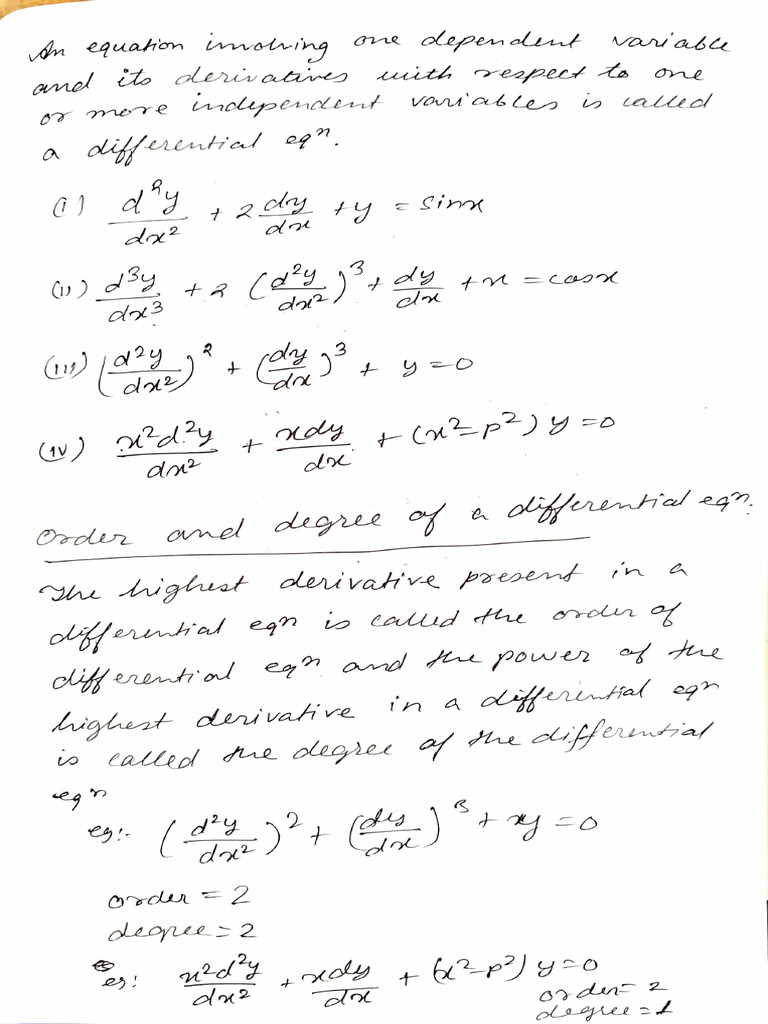 An equation involving one dependent variable
and its derivatives with respect to one
or more independent variables is called
a differential eqⁿ.
(i) d²y/dx² + 2 dy/dx + y = sinx
(ii) d³y/dx³ + 2 (d²y/dx²)³ + dy/dx + x = cosx
(iii) (d²y/dx²)² + (dy/dx)³ + y = 0
(iv) x²d²y/dx² + xdy/dx + (x²-p²) y = 0
Order and degree of a differential eqⁿ.
The highest derivative present in a
differential eqⁿ is called the order of
differential eqⁿ and the power of the
highest derivative in a differential eqⁿ
is called the degree of the differential
eqⁿ
eg:- (d²y/dx²)² + (dy/dx)³ + xy = 0
order = 2
degree = 2
eg: x²d²y/dx² + xdy/dx + (x²-p²) y = 0
order = 2
degree = 1